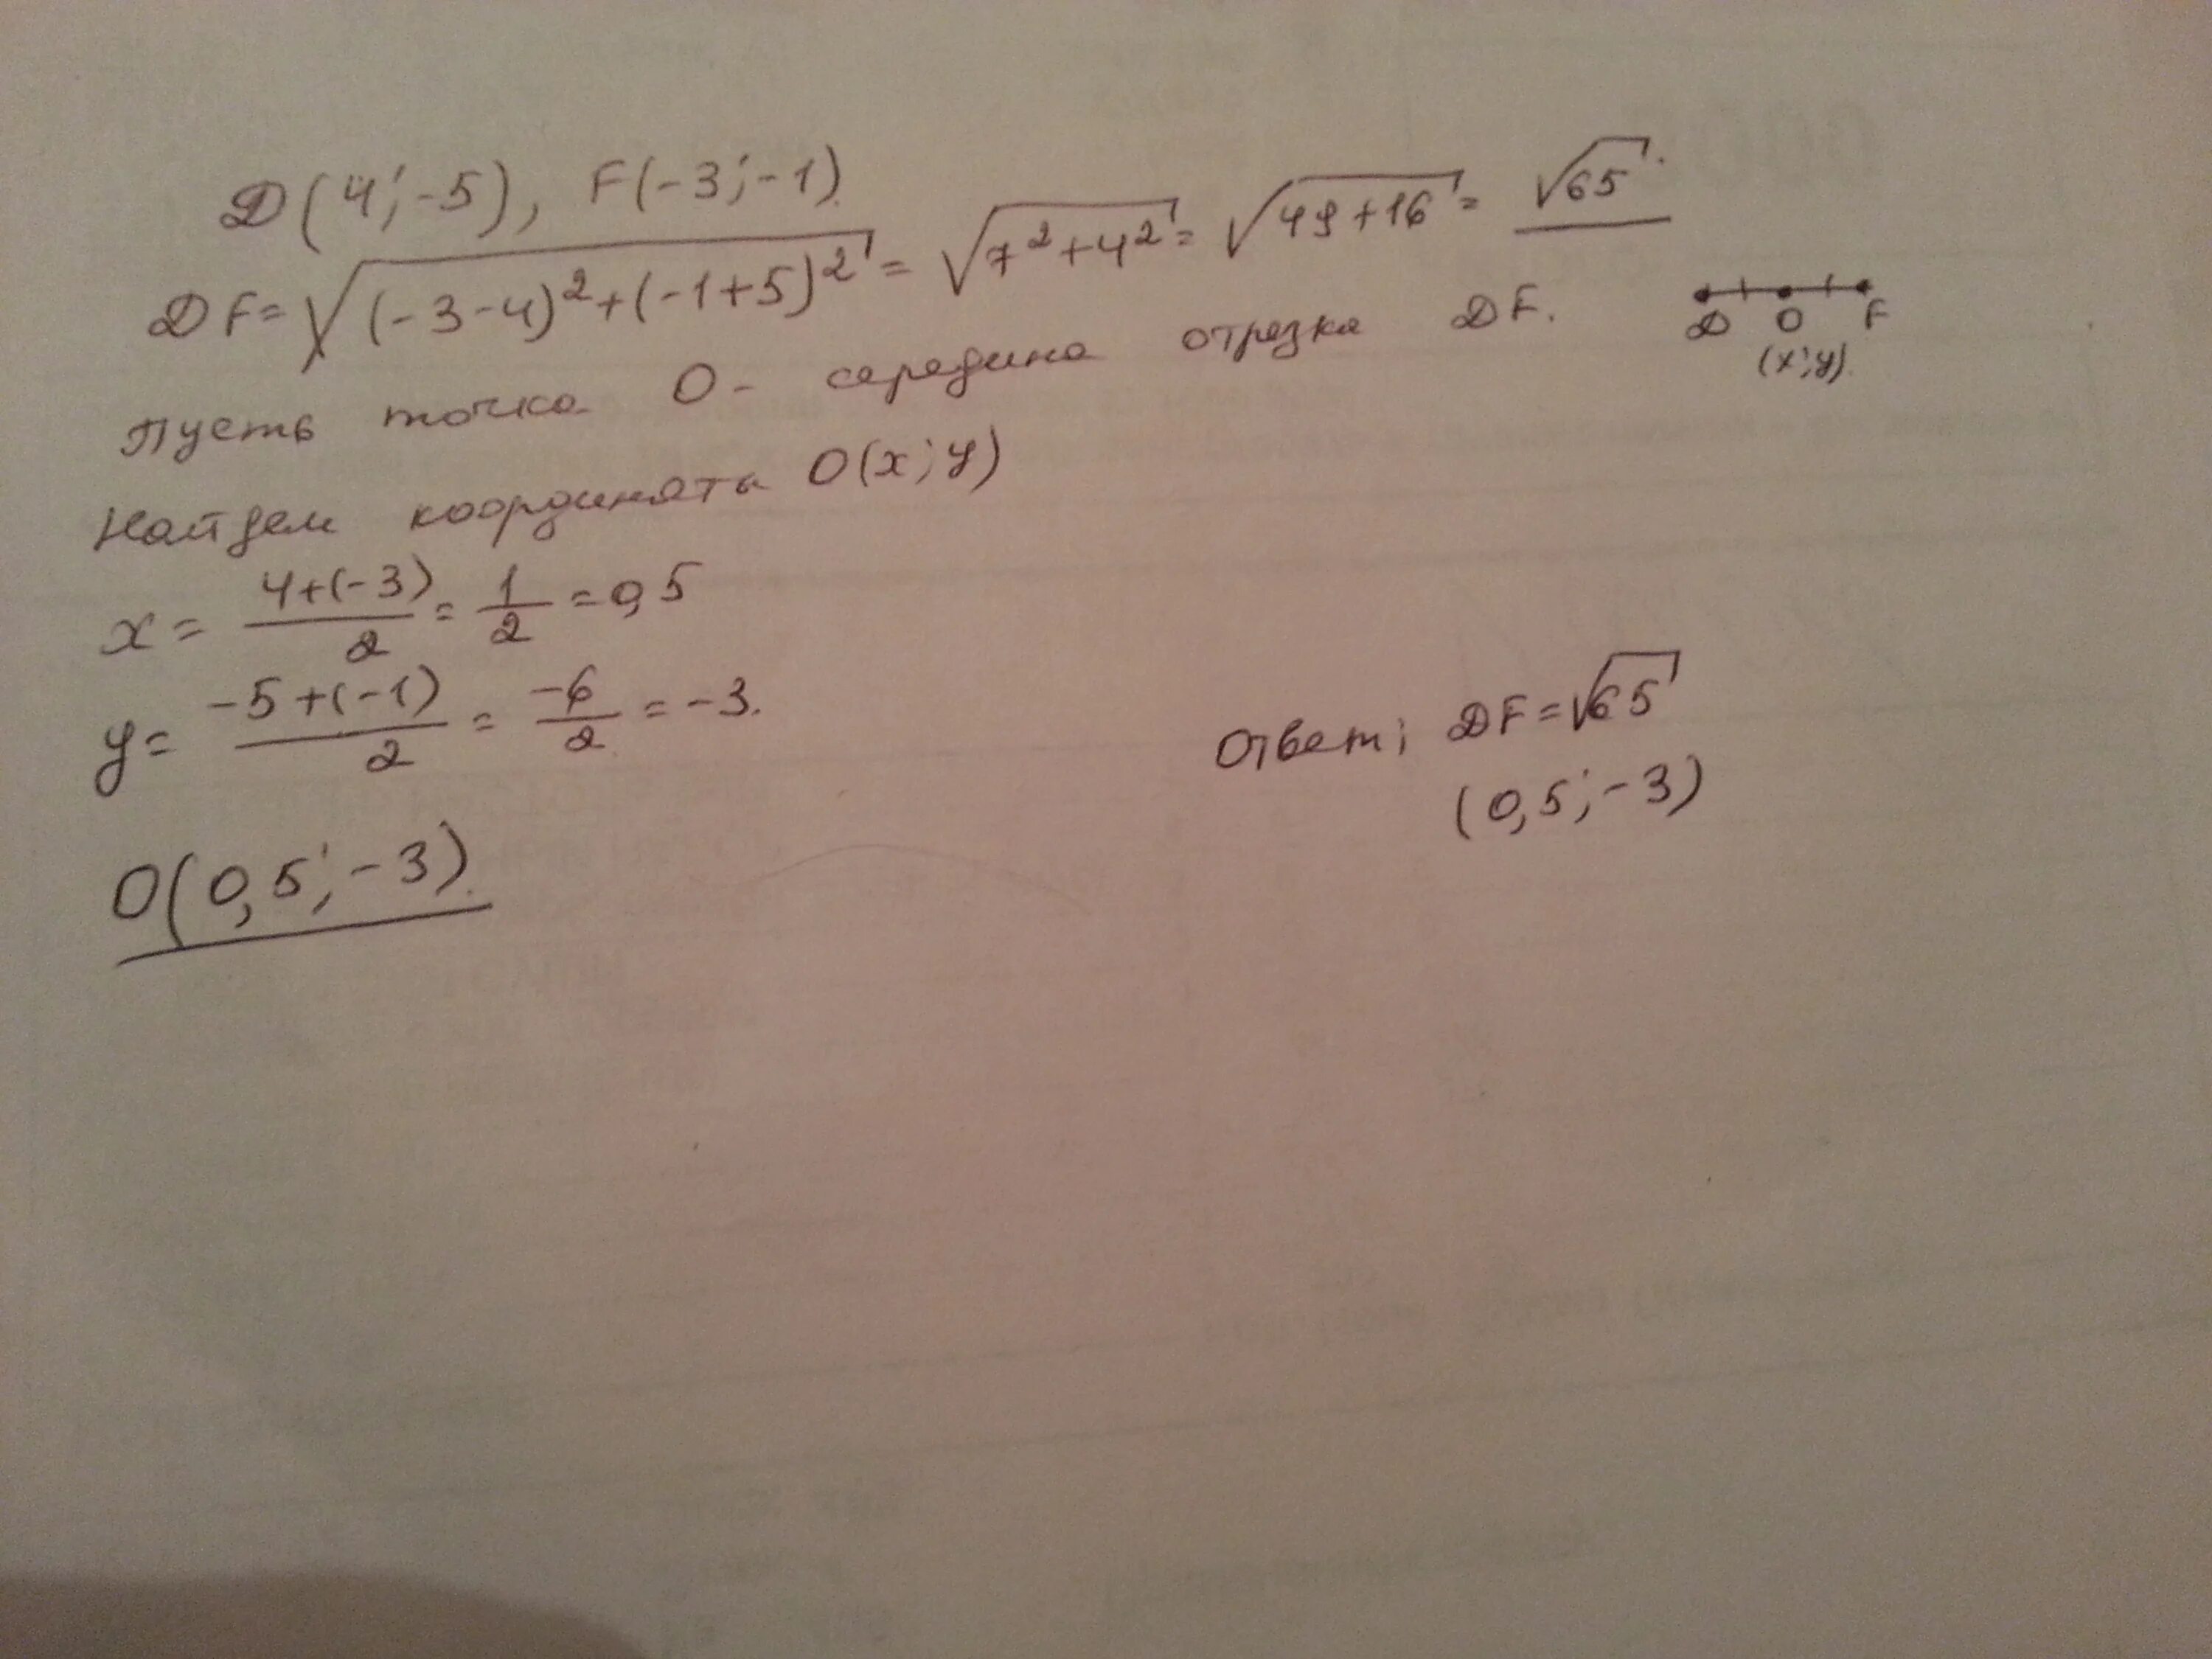 D(4;-5), F(-3;-1).
DF=√((-3-4)²+(-1+5)²)=√(7²+4²)=√(49+16)=√65.
D O F
(x;y).
Пусть точка O- середина отрезка DF.
Найдем координаты O(x;y)
x=(4+(-3))/2=1/2=0,5
y=(-5+(-1))/2=-6/2=-3.
O(0,5;-3).
Ответ: DF=√65
(0,5;-3)